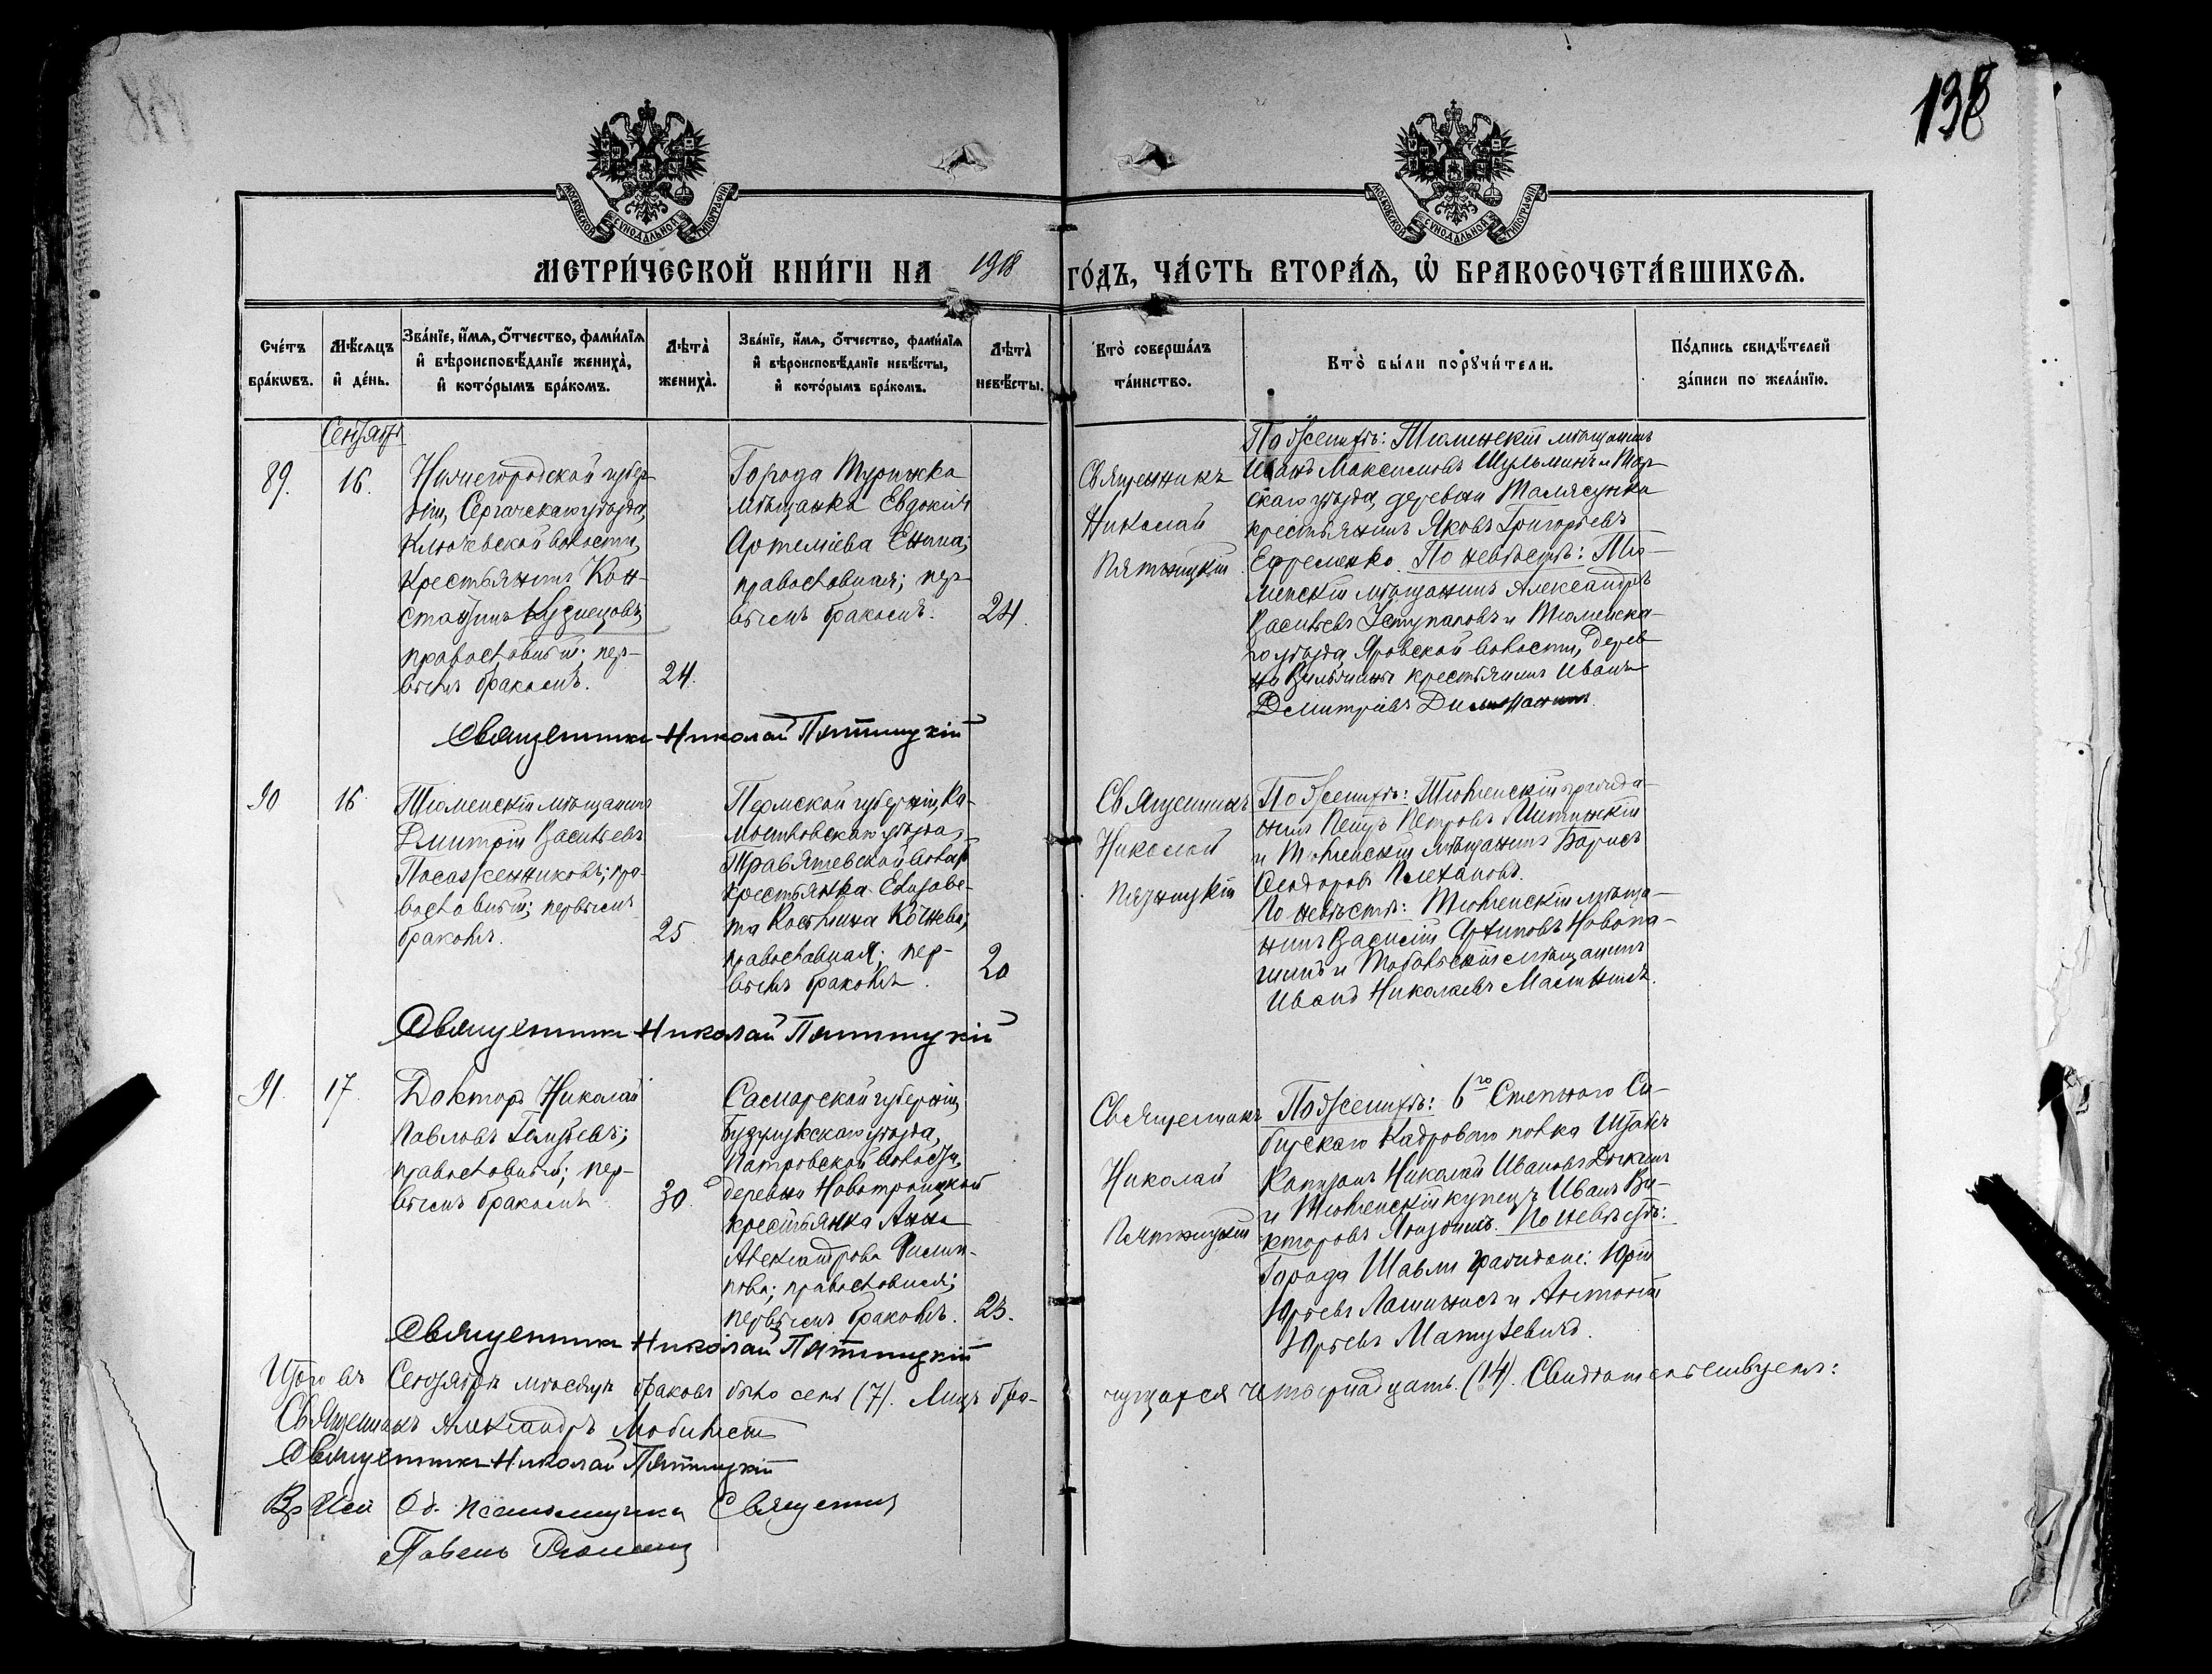 138
МОСКОВСКОЙ СѴНОДАЛЬНОЙ ТИПОГРАФІИ
МОСКОВСКОЙ СѴНОДАЛЬНОЙ ТИПОГРАФІИ
МЕТРИ́ЧЕСКОЙ КНИ́ГИ НА 1918 ГО́ДЪ, ЧА́СТЬ ВТОРА́Ѧ, Ѡ҆ БРАКОСОЧЕТА́ВШИХСѦ.
Сче́тъ
бра́кѡвъ.
Мѣ́сѧцъ
и҆ де́нь.
Зва́нїе, и҆́мѧ, о҆́тчество, фами́лїѧ
и҆ вѣроисповѣ́данїе жениха̀,
и҆ кото́рымъ бра́комъ.
Лѣта̀
жениха̀.
Зва́нїе, и҆́мѧ, о҆́тчество, фами́лїѧ
и҆ вѣроисповѣ́данїе невѣ́сты,
и҆ кото́рымъ бра́комъ.
Лѣта̀
невѣ́сты.
Кто̀ соверша́лъ
та́инство.
Кто̀ бы́ли порꙋчи́тели.
По́дпись свидѣ́телей
за́писи по жела́нїю.
Сентября
89.
16.
Нижегородской губер-
ніи, Сергачскаго уѣзда,
Ключевской волости,
крестьянинъ Кон-
стантинъ Кузнецовъ;
православный; пер-
вымъ бракомъ.
24.
Города Туринска
мѣщанка Евдокія
Артеміева Енина;
православная; пер-
вымъ бракомъ.
24.
Священникъ
Николай
Пятницкій
По женихѣ: Тюменскій мѣщанинъ
Иванъ Максимовъ Шульминъ и Тар-
скаго уѣзда, деревни
крестьянинъ Яковъ Григорьевъ
Ефременко. По невѣстѣ: Тю-
менскій мѣщанинъ Александръ
Васильевъ Уступаловъ и Тюменска-
го уѣзда, Яровской волости, дерев-
ни крестьянинъ Иванъ
Димитріевъ
Священникъ Николай Пятницкій
90
16
Тюменскій мѣщанинъ
Дмитрій Васильевъ
Посаженниковъ; пра-
вославный; первымъ
бракомъ.
25.
Пермской губерніи, Ка-
мышловскаго уѣзда,
Травянской волости
крестьянка Елизаве-
та Космина Кочнева;
православная; пер-
вымъ бракомъ.
20
Священникъ
Николай
Пятницкій
По женихѣ: Тюменскій гражда-
нинъ Петръ Петровъ Митинскій
и Тюменскій мѣщанинъ Борисъ
Ѳеодоровъ Плехановъ.
По невѣстѣ: Тюменскій мѣща-
нинъ Василій Архиповъ Новопа-
шинъ и Тобольскій мѣщанинъ
Иванъ Николаевъ
Священникъ Николай Пятницкій
91.
17.
Докторъ Николай
Павловъ Голубевъ;
православный; пер-
вымъ бракомъ
30.
Самарской губерніи,
Бузулукскаго уѣзда,
Патровской волости,
деревни Новотроицкой
крестьянка Анна
Александрова Филип-
пова; православная;
первымъ бракомъ.
23.
Священникъ
Николай
Пятницкій
По женихѣ: 6го Степного Си-
бирскаго Кадроваго полка Штабъ
Капитанъ Николай Ивановъ
и Тюменскій купецъ Иванъ Ви-
кторовъ По невѣстѣ:
Города Шавли граждане: Юрій
Юрьевъ и Антоній
Юрьевъ Матулевичъ.
Священникъ Николай Пятницкій
Итого въ Сентябрѣ мѣсяцѣ браковъ было семь (7). Лицъ бра-
чущихся четырнадцать (14). Свидѣтельствуемъ:
Священникъ Александръ
Священникъ Николай Пятницкій
Об. псаломщика Священникъ
Павелъ